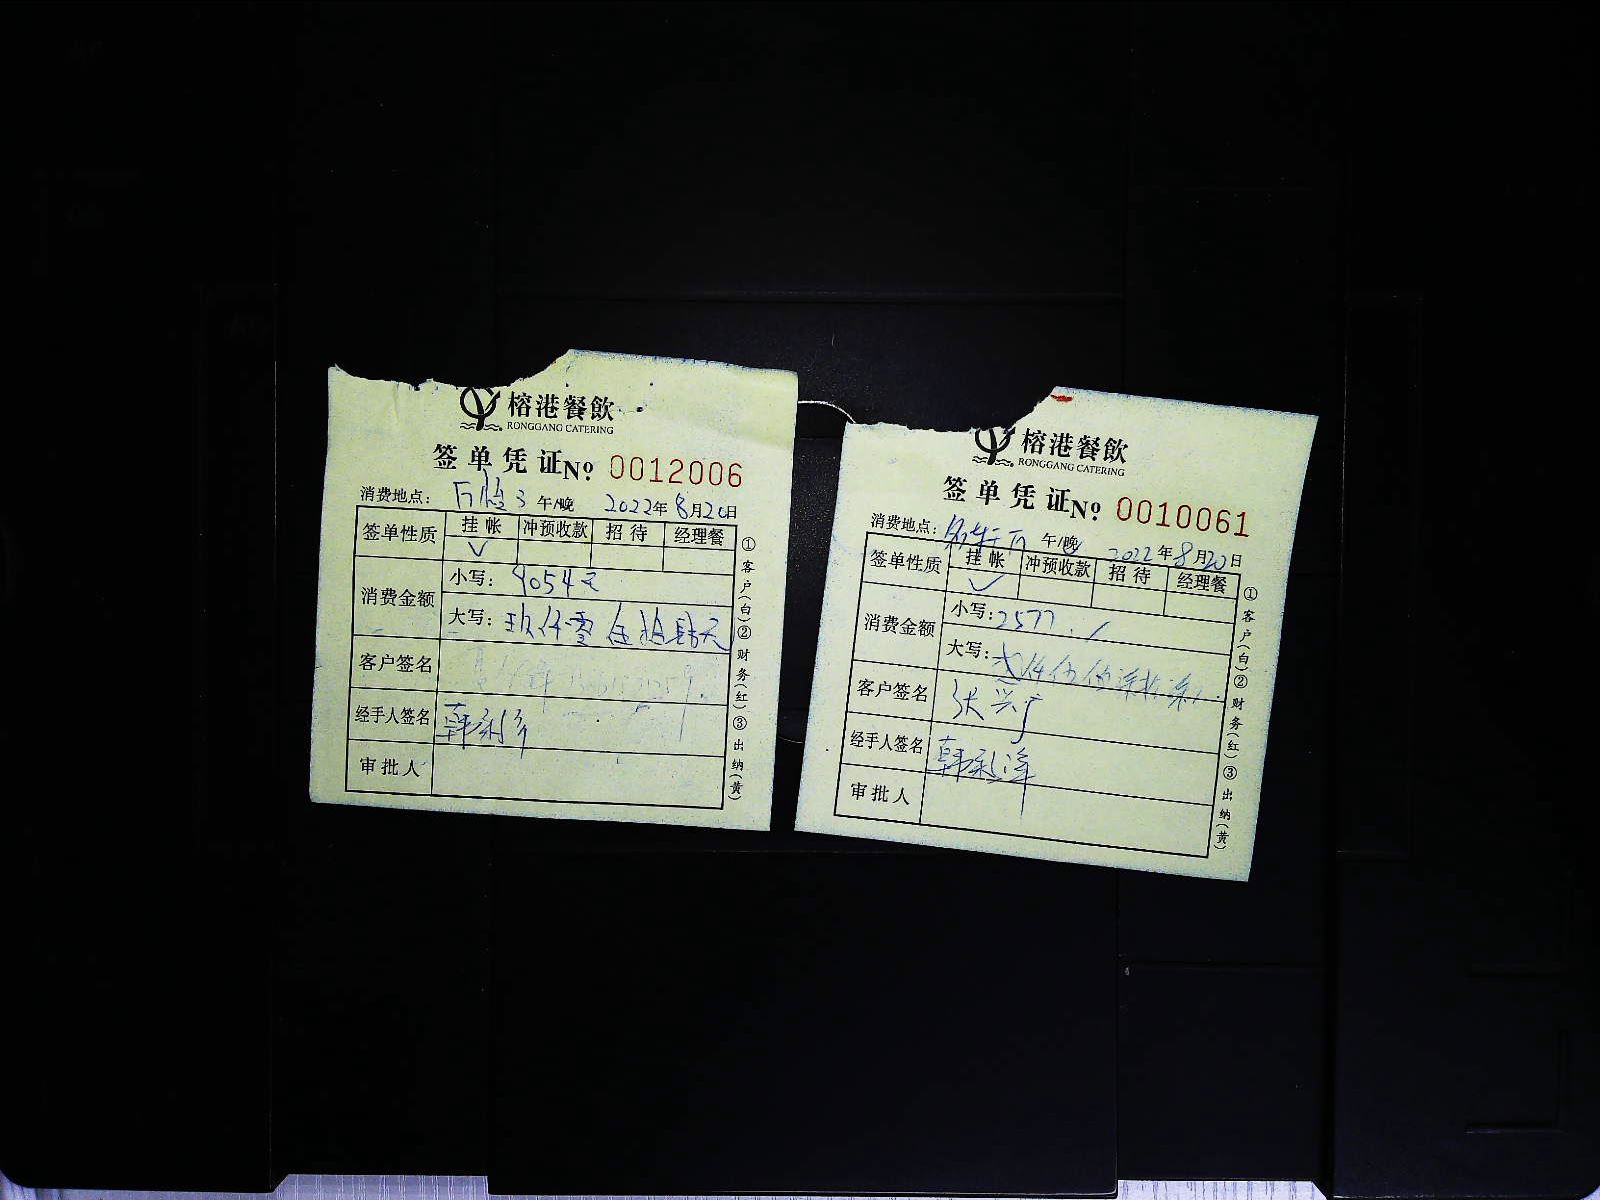 榕港餐飲
RONGGANG CATERING
签单凭证 № 0012006
消费地点： 午/晚 2022年8月20日
签单性质 挂帐 冲预收款 招待 经理餐
✓
消费金额 小写： 9054元
大写： 玖仟零伍拾肆元
客户签名
经手人签名 韩
审批人
①客户（白）②财务（红）③出纳（黄）
榕港餐飲
RONGGANG CATERING
签单凭证 № 0010061
消费地点： 午/晚 2022年8月20日
签单性质 挂帐 冲预收款 招待 经理餐
✓
消费金额 小写： 2577.
大写： 弍仟伍佰柒拾柒
客户签名 张兴
经手人签名 韩
审批人
①客户（白）②财务（红）③出纳（黄）